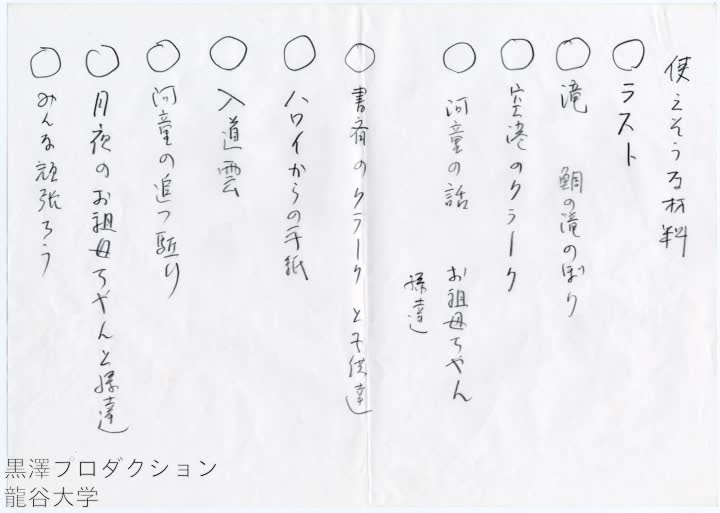 使えそうな材料
○ ラスト
○ 滝 鯛の滝のぼり
○ 空港のクラーク
○ 河童の話 お祖母ちゃん
孫達
○ 書斎のクラークと子供達
○ ハワイからの手紙
○ 入道雲
○ 河童の追っ駈け
○ 月夜のお祖母ちゃんと孫達
○ みんな頑張ろう
黒澤プロダクション
龍谷大学